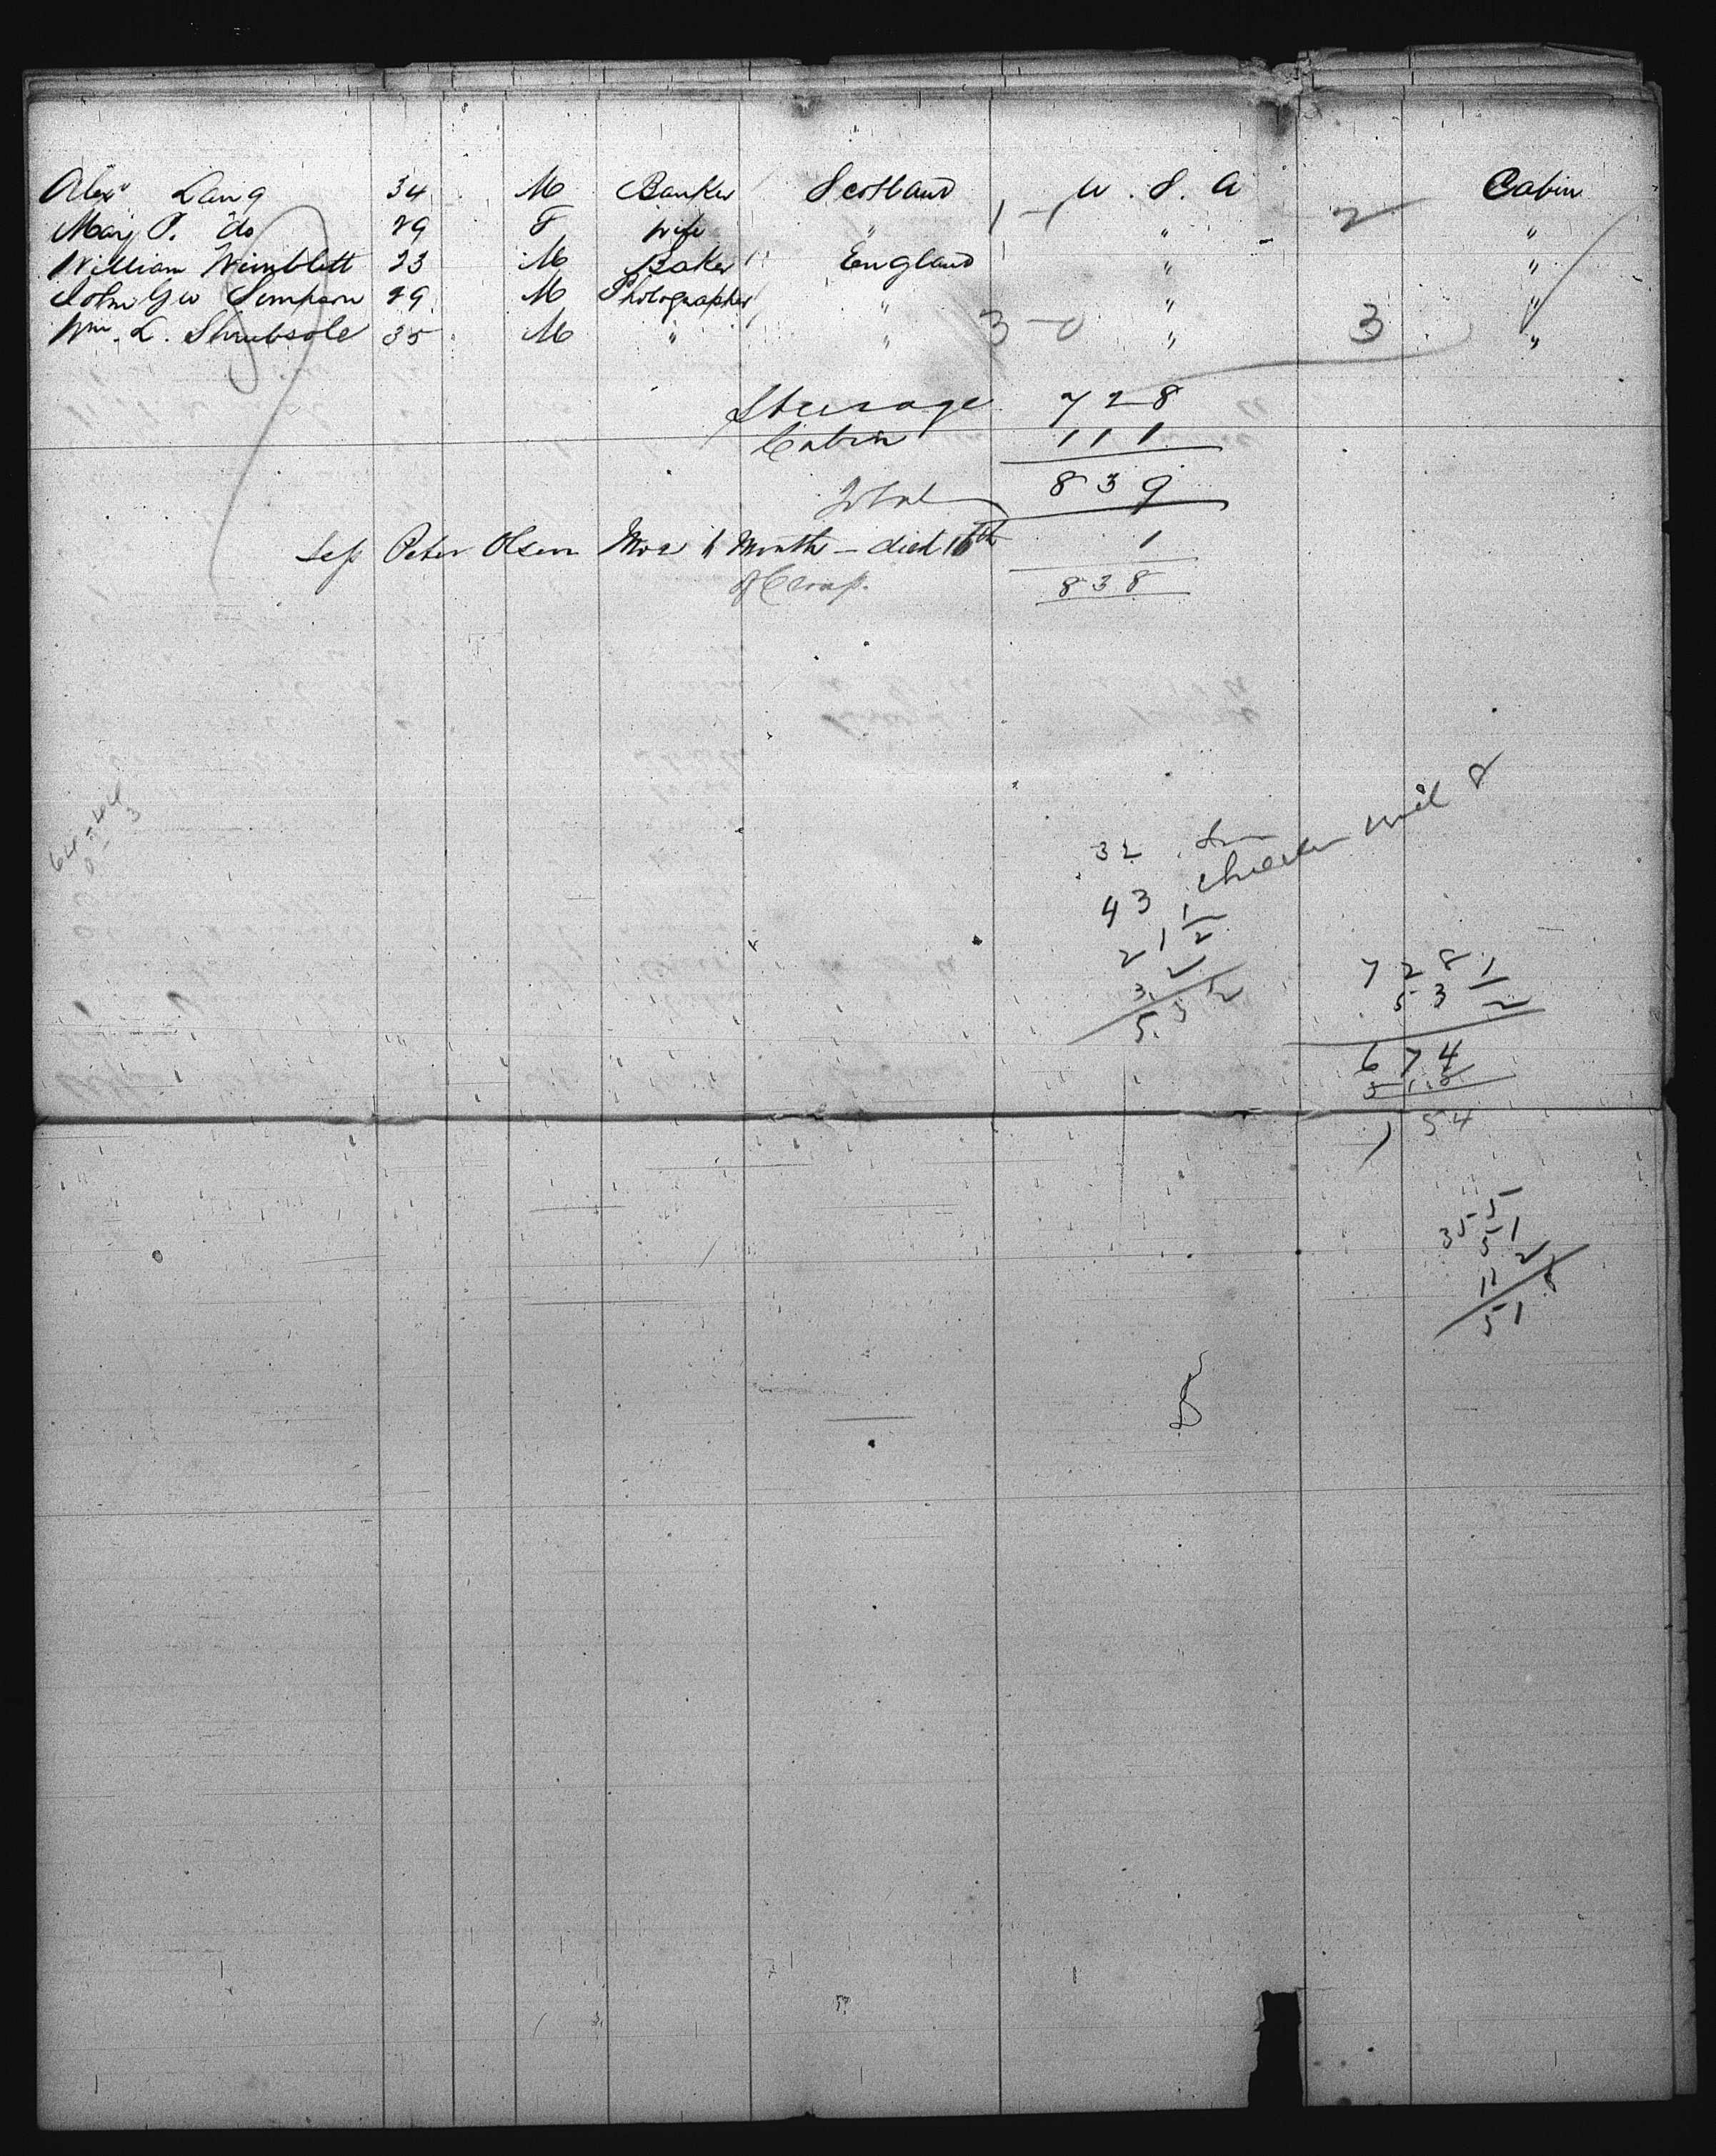 Alexr Laing 34 M Banker Scotland U. S. A Cabin
Mary P. do 29 F Wife " 1-1 " 2 "
William Wimblett 23 M Baker England " "
John Geo Simpson 29 M Photographer " " "
Wm. L. Shrubsole 35 M " " 3-0 " 3 "
Steerage 728
Cabin 111
Total 839
Less Peter Olsen Month - died 16th 1
of Croup. 838
64-44
0-3
32
43
21 1/2
3 2
53 1/2
728 1
53 1/2
674
518
154
355
51
12
51